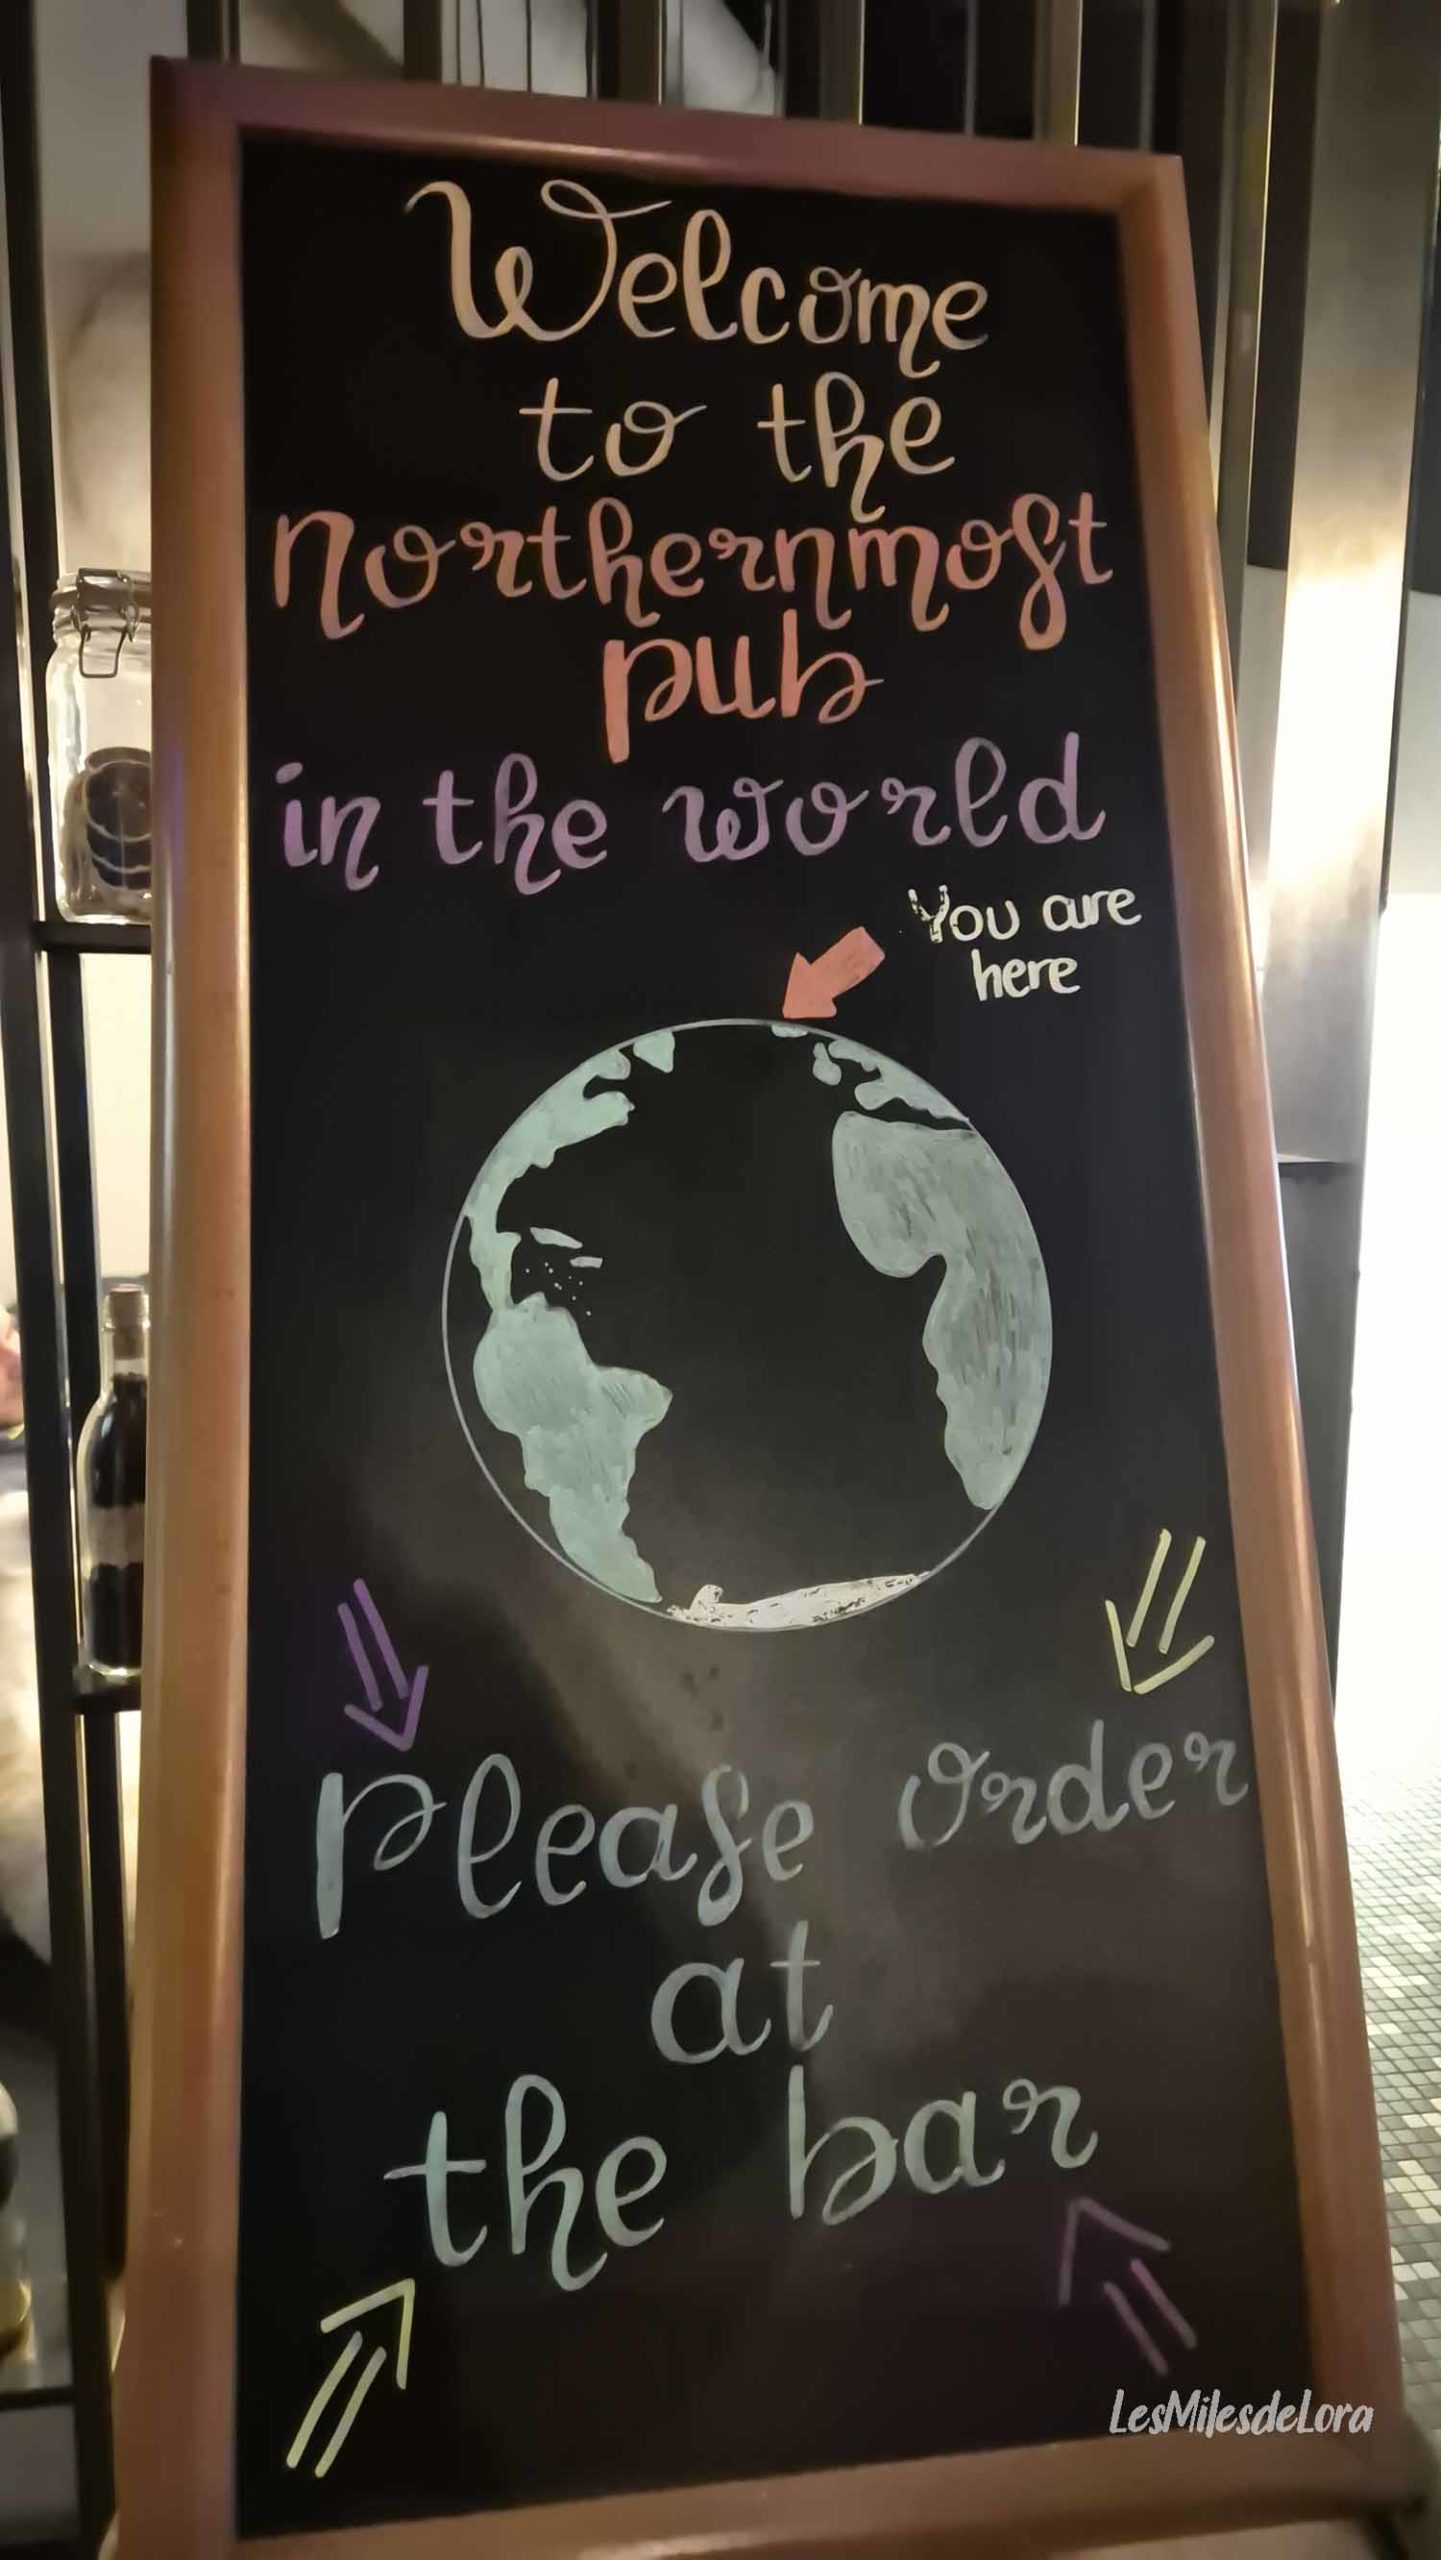 Welcome
to the
Northernmost
pub
in the world
You are
here
Please order
at
the bar
LesMilesdeLora